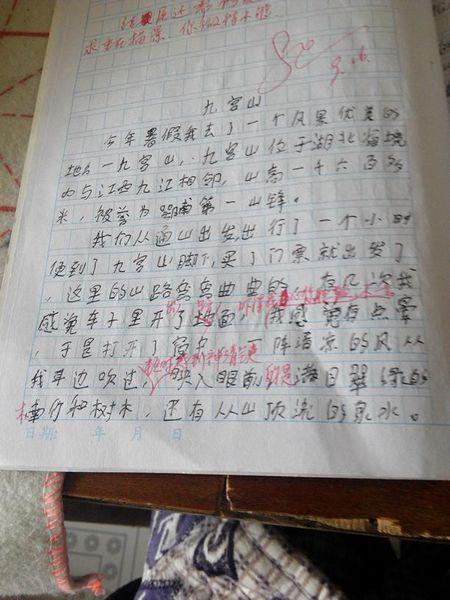 结尾还需
求 描景，你做得不够
九宫山
今年暑假我去了一个风景优美的
地方一九宫山，九宫山位于湖北省境
内与江西九江相邻，山高一千六百多
米，被誉为鄂南第一山峰。
我们从通山出发，出行了一个小时
便到了九宫山脚下，买了门票就出发了
，这里的山路弯弯曲曲的，有几次我
感觉车子里开了地面，我感觉有点晕
，于是打开了窗户，一阵清凉的风从
我耳边吹过，映入眼前的是满目翠绿的
楠竹和树木，还有从山顶流的泉水。
日期： 年 月 日